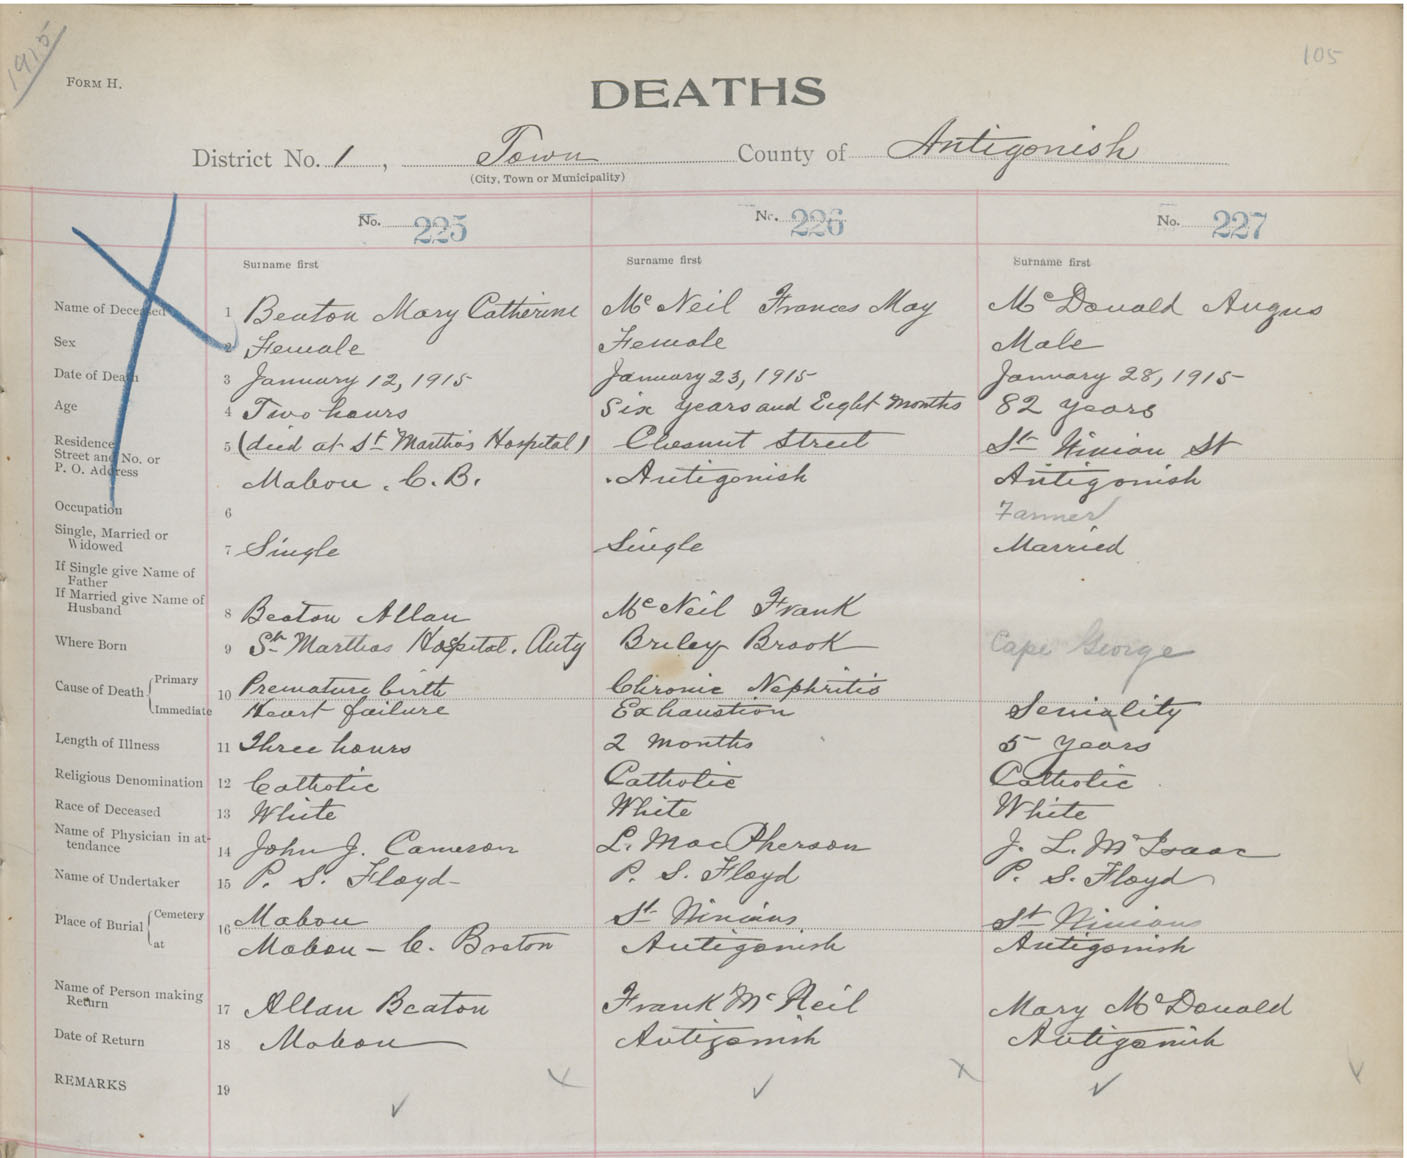 1915
105
FORM H.
DEATHS
District No. 1, Town County of Antigonish
(City, Town or Municipality)
No. 225 No. 226 No. 227
Surname first Surname first Surname first
Name of Deceased 1 Beaton Mary Catherine McNeil Frances May McDonald Angus
Sex 2 Female Female Male
Date of Death 3 January 12, 1915 January 23, 1915 January 28, 1915
Age 4 Two hours Six years and Eight Months 82 years
Residence 5 (died at St Martha's Hospital) Chesnut Street St Ninian St
Street and No. or
P. O. Address Mabou. C. B. Antigonish Antigonish
Occupation 6 Farmer
Single, Married or
Widowed 7 Single Single Married
If Single give Name of
Father
If Married give Name of
Husband 8 Beaton Allan McNeil Frank
Where Born 9 St. Marthas Hospital. Antg Briley Brook Cape George
Cause of Death Primary 10 Premature birth Chronic Nephritis
Immediate Heart failure Exhaustion Seniality
Length of Illness 11 Three hours 2 months 5 years
Religious Denomination 12 Catholic Catholic Catholic
Race of Deceased 13 White White White
Name of Physician in at-
tendance 14 John J. Cameron L. MacPherson J. L. McIsaac
Name of Undertaker 15 P. S. Floyd P. S. Floyd P. S. Floyd
Place of Burial Cemetery 16 Mabou St Ninians St Ninians
at Mabou - C. Breton Antigonish Antigonish
Name of Person making
Return 17 Allan Beaton Frank McNeil Mary McDonald
Date of Return 18 Mabou Antigonish Antigonish
REMARKS 19